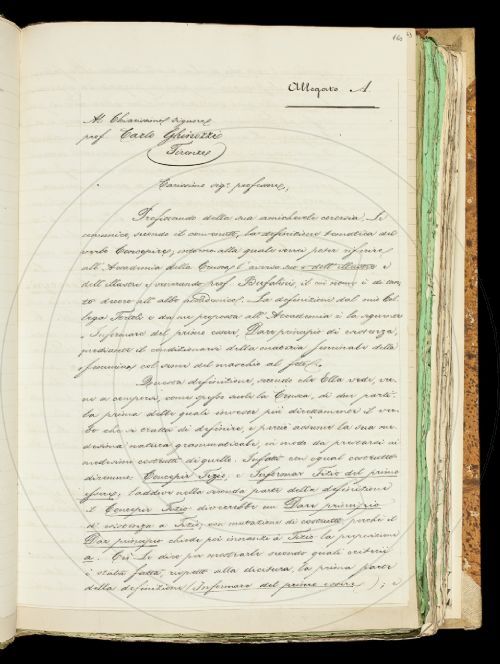 160 49
Allegato A.
Al Chiarissimo Signore
prof. Carlo Ghinozzi
Firenze
Carissimo sigr professore,
Profittando della sua amichevole cortesia, Le
comunico, secondo il convenuto, la definizione tematica del
verbo Concepire, intorno alla quale vorrei poter riferire
all'Accademia della Crusca l'avviso suo e dell'illustre e
dell'illustre e venerando prof. Bufalini, il cui nome è di tan-
to decoro all'albo accademico. La definizione dal mio Col-
lega Tortoli e da me proposta all'Accademia è la seguente
" Informare del primo essere, Dare principio di esistenza,
mediante il condizionarsi della materia seminale della
femmina col seme del maschio al feto".
Questa definizione, secondo che Ella vede, vie-
ne a comporsi, come spesso suole la Crusca, di due parti:
la prima delle quali investe più direttamente il ver-
bo che si tratta di definire, e perciò assume la sua me-
desima natura grammaticale, in modo da prestarsi ai
medesimi costrutti di quello. Infatti con egual costrutto
diremmo Concepir Tizio, e Informar Tizio del primo
essere, laddove nella seconda parte della definizione
il Concepir Tizio diverrebbe un Dare principio
di esistenza a Tizio, con mutazione di costrutto perchè il
Dar principio chiede poi innanzi a Tizio la preposizione
a. Ciò Le dico per mostrarle secondo quali criterii
è stata fatta, rispetto alla dicitura, la prima parte
della definizione (Informare del primo essere); e